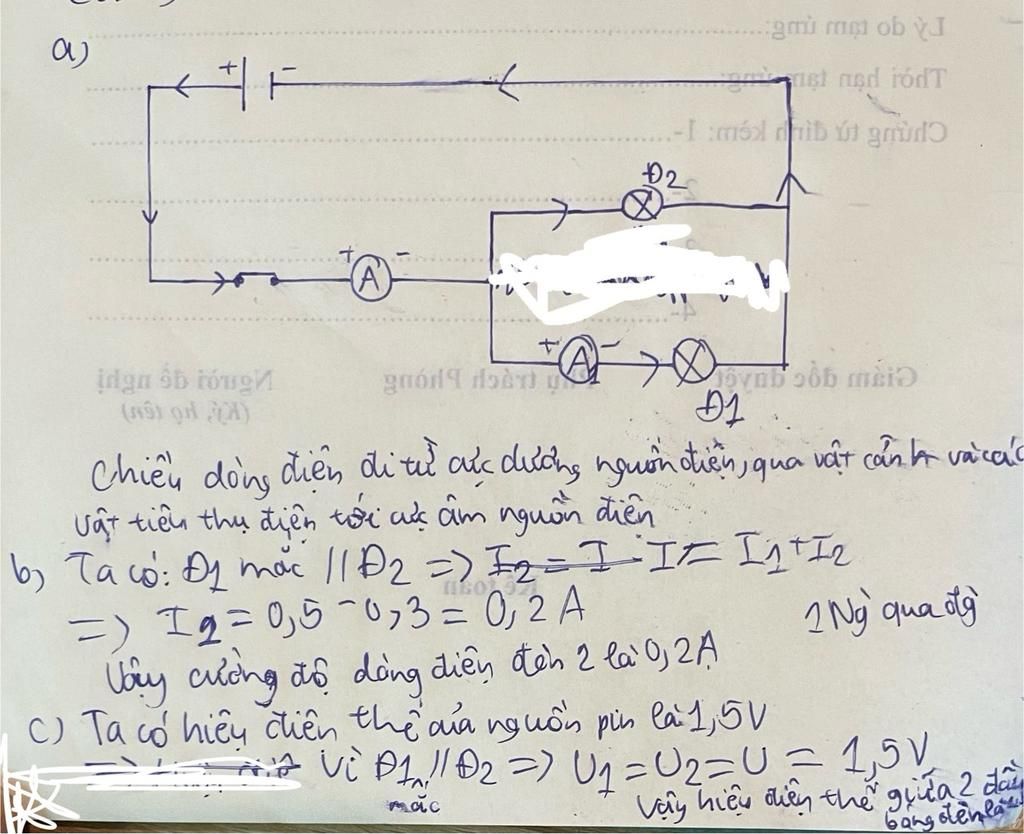 a)
+ -
Đ2
+ A -
+ A1 -
Đ1
Chiều dòng điện đi từ cực dương nguồn điện, qua vật và các
vật tiêu thụ điện tới cực âm nguồn điện
b) Ta có: Đ1 mắc // Đ2 => I = I1 + I2
=> I2 = 0,5 - 0,3 = 0,2 A
1 Ng qua
Vậy cường độ dòng điện đèn 2 là 0,2A
c) Ta có hiệu điện thế của nguồn pin là 1,5V
Vì Đ1 mắc // Đ2 => U1 = U2 = U = 1,5V
Vậy hiệu điện thế giữa 2 đầu
bóng đèn là
Lý do tạm ứng:
Thời hạn tạm ứng:
Chứng từ đính kèm: 1-
2-
4-
Giám đốc duyệt Phụ trách Phòng Người đề nghị
(Ký, họ tên)
Kế toán